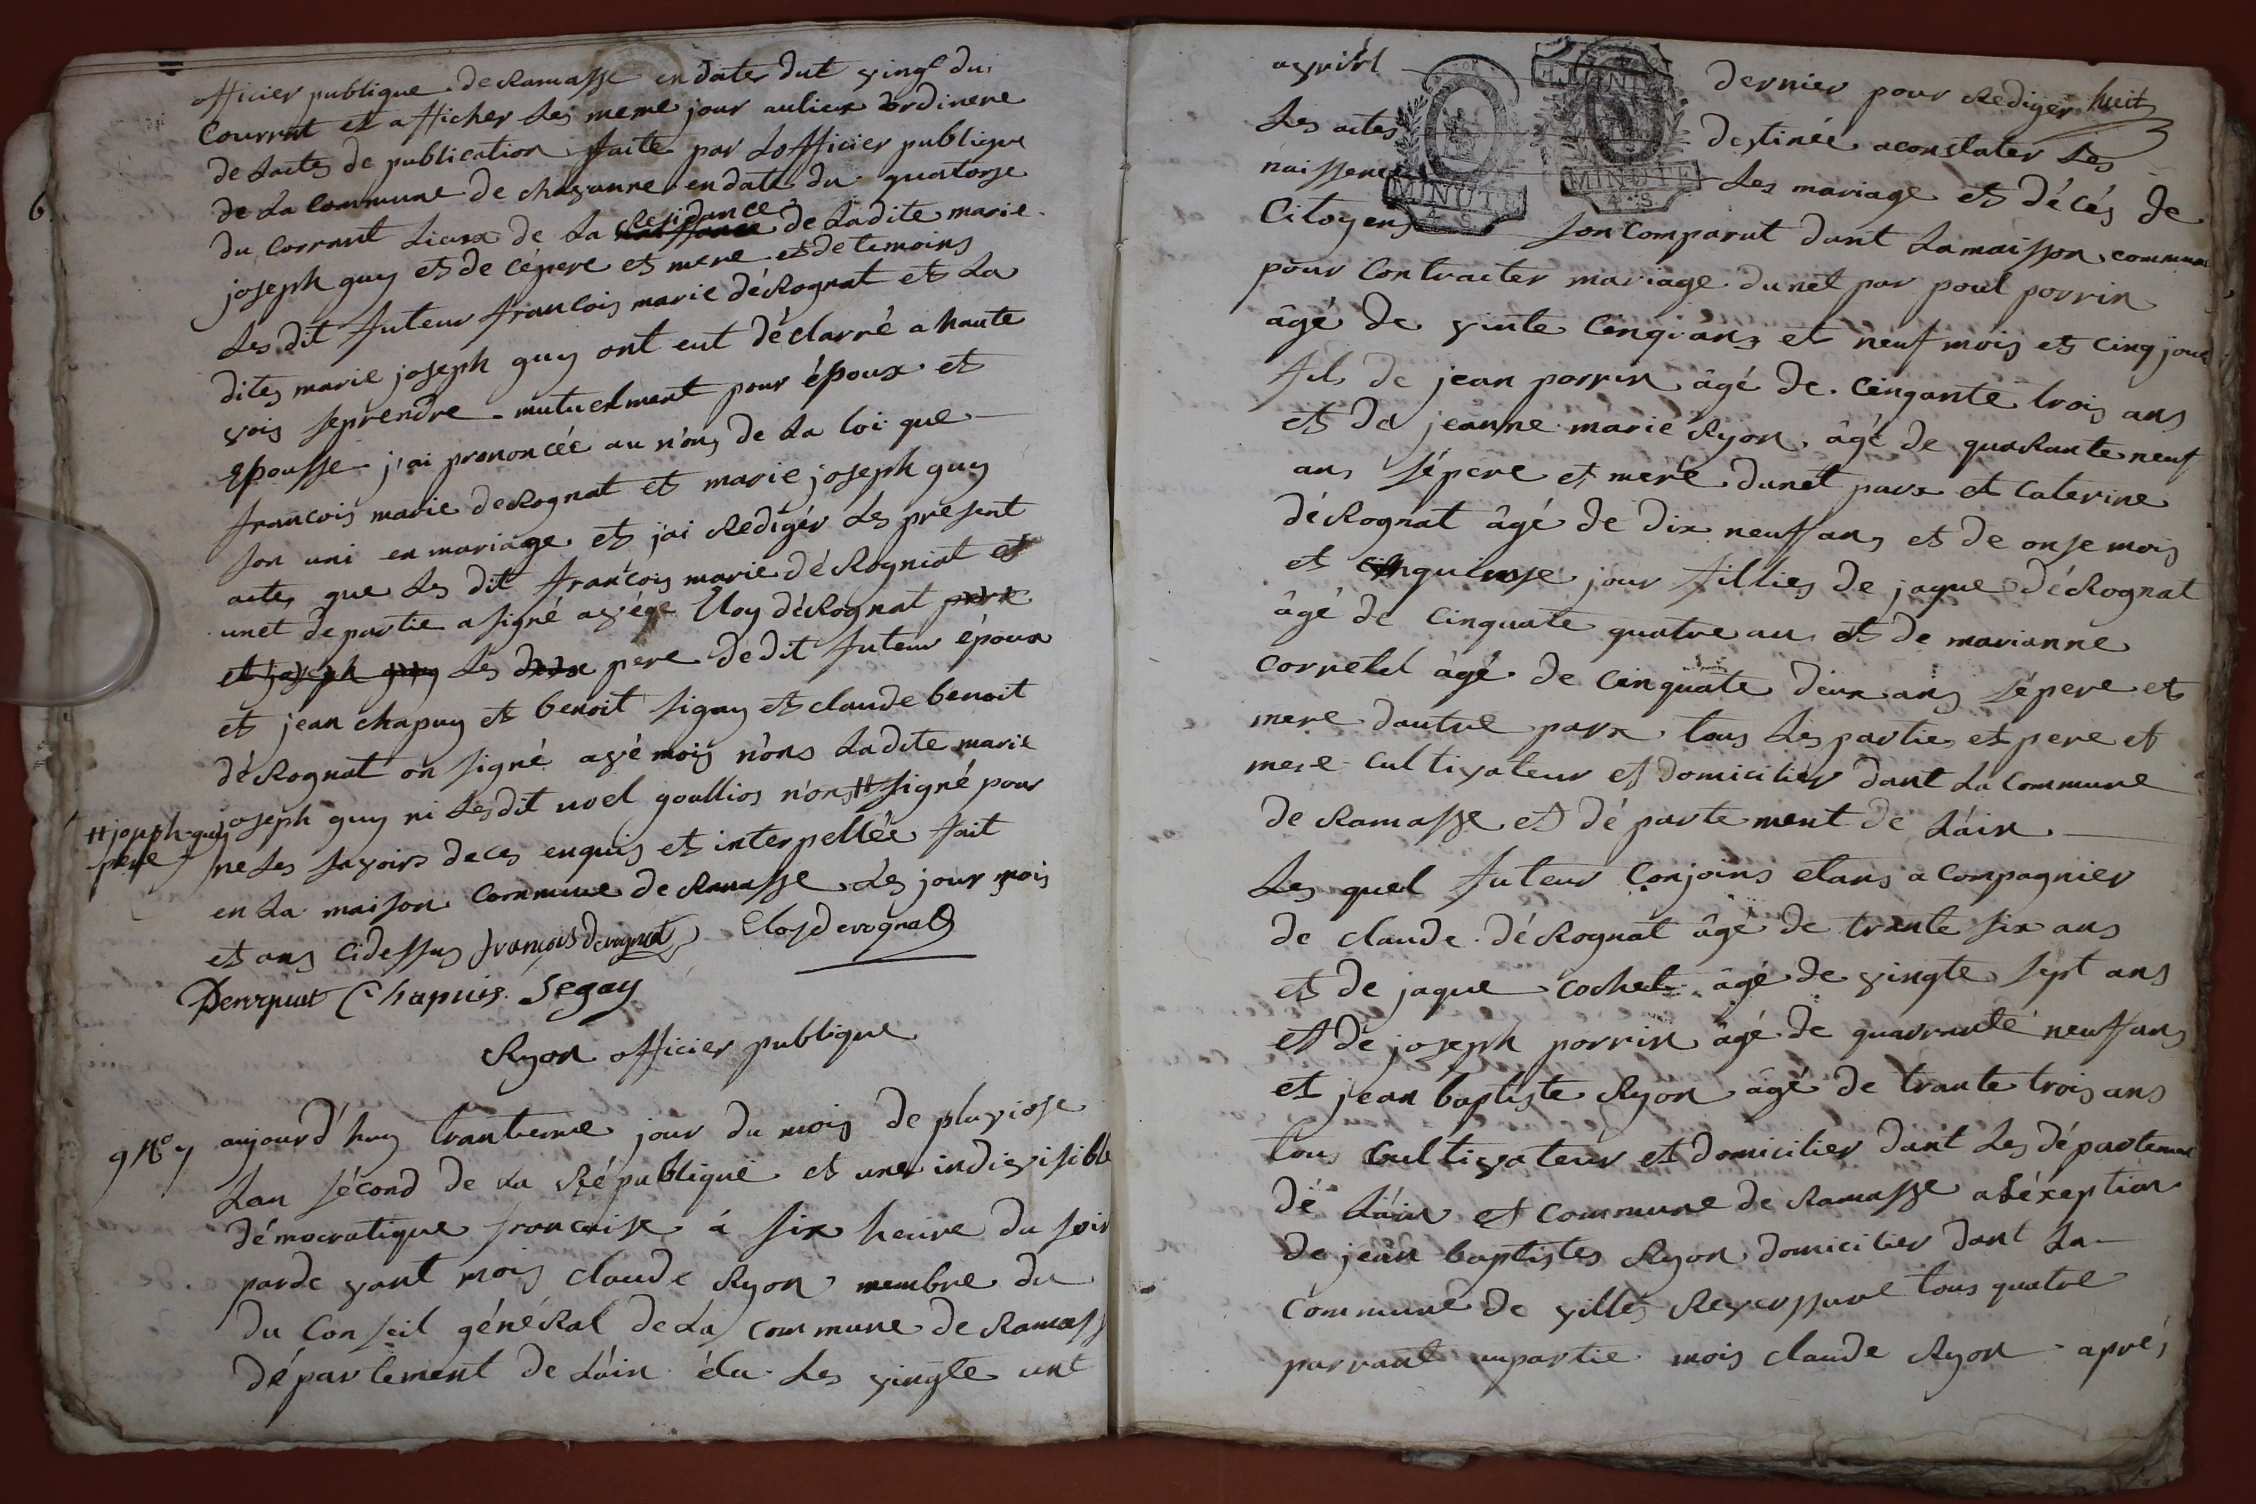 officier publique de Ramasse en date dut vingt du
Courrnt et afficher les meme jour aulieux ordinere
de lactes de publication faite par lofficier publique
de la Commune de chavanne en date du quatorse
6
du Corrant Lieux de La Residance de Ladite marie
joseph guy et de cépere et mere et de temoins
Les dit futeur francois marie déRognat et La
dites marie joseph guy ont eut déclarré a haute
vois seprendre mutuelment pour époux et
Epousse j'ai prononcée au nons de La loi que
francois marie deRognat et marie joseph guy
son uni en mariage et jai Rediger Les present
actes que Les dit francois marie déRogniat et
unet de partie a signé avéqe Eloy déRognat pere
et joseph guy Les deux pere dedit futeur époux
et jean chapuy et benoit sigay et claude benoit
déRognat on signé avé mois nons Ladite marie
joseph guy ni Lesdit noel goullios nons # signé pour
# joseph guy
pere
ne Les savoirs de ces enquis et interpellée fait
en La maison Commune de Ramasse Les jour mois
et ans cidessus francois derognat Eloy derognat
Derognat Chapuis Segay
Ryon officier publique
N° 7
aujourd'huy trantieme jour du mois de pluviose
Lan sécond de La République et une indivisible
démocratique francaise à six heure du soir
parde vant mois claude Ryon membre du
du Conseil généRal de La Commune de Ramass
département de Láin élu Les vingte unt
avrirl dernier pour Rediger huit
Les actes destinée aconstater Les
naissence Les mariage et décés de
Citoyens son Comparut dant Lamaisson commune
MINUTE
4. S
MINUTE
4. S
pour Contracter mariage dunet par poul porrin
âgé de vinte Cinq ans et neuf mois et cinq jour
fils de jean porrin âgé de Cinqante trois ans
et de jeanne marie Ryon âgé de quaRante neuf
ans sépere et mere dunet parx et Caterine
déRognat âgé de dix neuf ans et de onse mois
et quinsse jour fillies de jaque déRognat
âgé de Cinquate quatre an et de marianne
Corretel âgé de Cinquate deux ans sépere et
mere dautre parx tous Les parties et pere et
mere Cultivateur et domicilier dant La Commune
de Ramasse et département de Láin
Les quel futeur Conjoins etans a Compagnier
de claude déRognat âgé de trante six ans
et de jaque Cochet âgé de vingte sept ans
et de joseph porrin âgé de quarrante neuf ans
et jean baptiste Ryon âgé de trante trois ans
tous Cultivateur et domicilier dant Les département
de Láin et Commune de Ramasse a Léxeption
de jean baptistes Ryon domicilier dant La
Commune de villes Reverssure tous quatre
parrant aupartie mois claude Ryon aprés